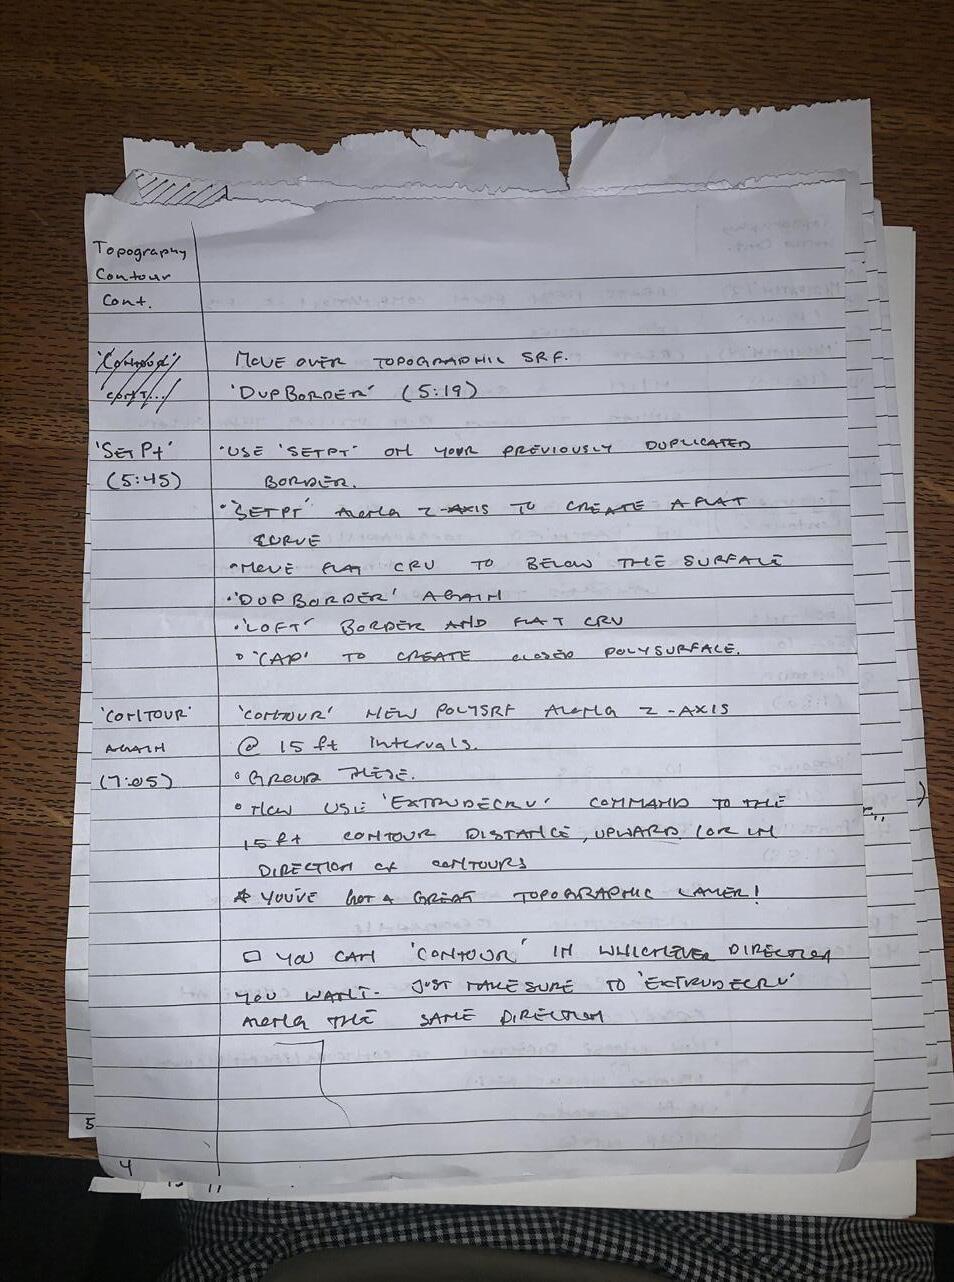 Topography
Contour
Cont.
'Contour'
cont...
MOVE OVER TOPOGRAPHIC SRF.
'DUPBORDER' (5:19)
'SetPt'
(5:45)
•USE 'SETPT' ON YOUR PREVIOUSLY DUPLICATED
BORDER.
•'SETPT' ALONG Z-AXIS TO CREATE A FLAT
CURVE
•MOVE FLAT CRV TO BELOW THE SURFACE
•'DUPBORDER' AGAIN
•'LOFT' BORDER AND FLAT CRV
•'CAP' TO CREATE CLOSED POLYSURFACE.
'CONTOUR'
AGAIN
(7:05)
'CONTOUR' NEW POLYSRF ALONG Z-AXIS
@ 15 ft intervals.
•GROUP THESE.
•NOW USE 'EXTRUDECRV' COMMAND TO THE
15ft CONTOUR DISTANCE, UPWARD (OR IN
DIRECTION OF CONTOURS
* YOU'VE GOT A GREAT TOPOGRAPHIC LAYER!
□ YOU CAN 'CONTOUR' IN WHICHEVER DIRECTION
YOU WANT- JUST MAKE SURE TO 'EXTRUDECRV'
ALONG THE SAME DIRECTION
5
4
11